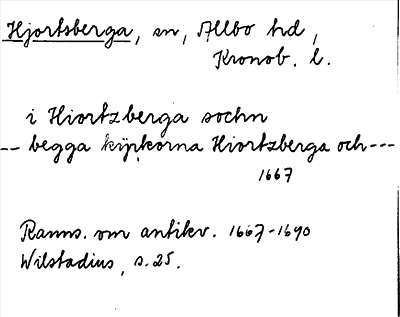 Hjortsberga, sn, Allbo hd,
Kronob. l.
i Hiortzberga sochn
-- begga kijrkorna Hiortzberga och ---
1667
Ranns. om antikv. 1667-1690
Wilstadius, s. 25.